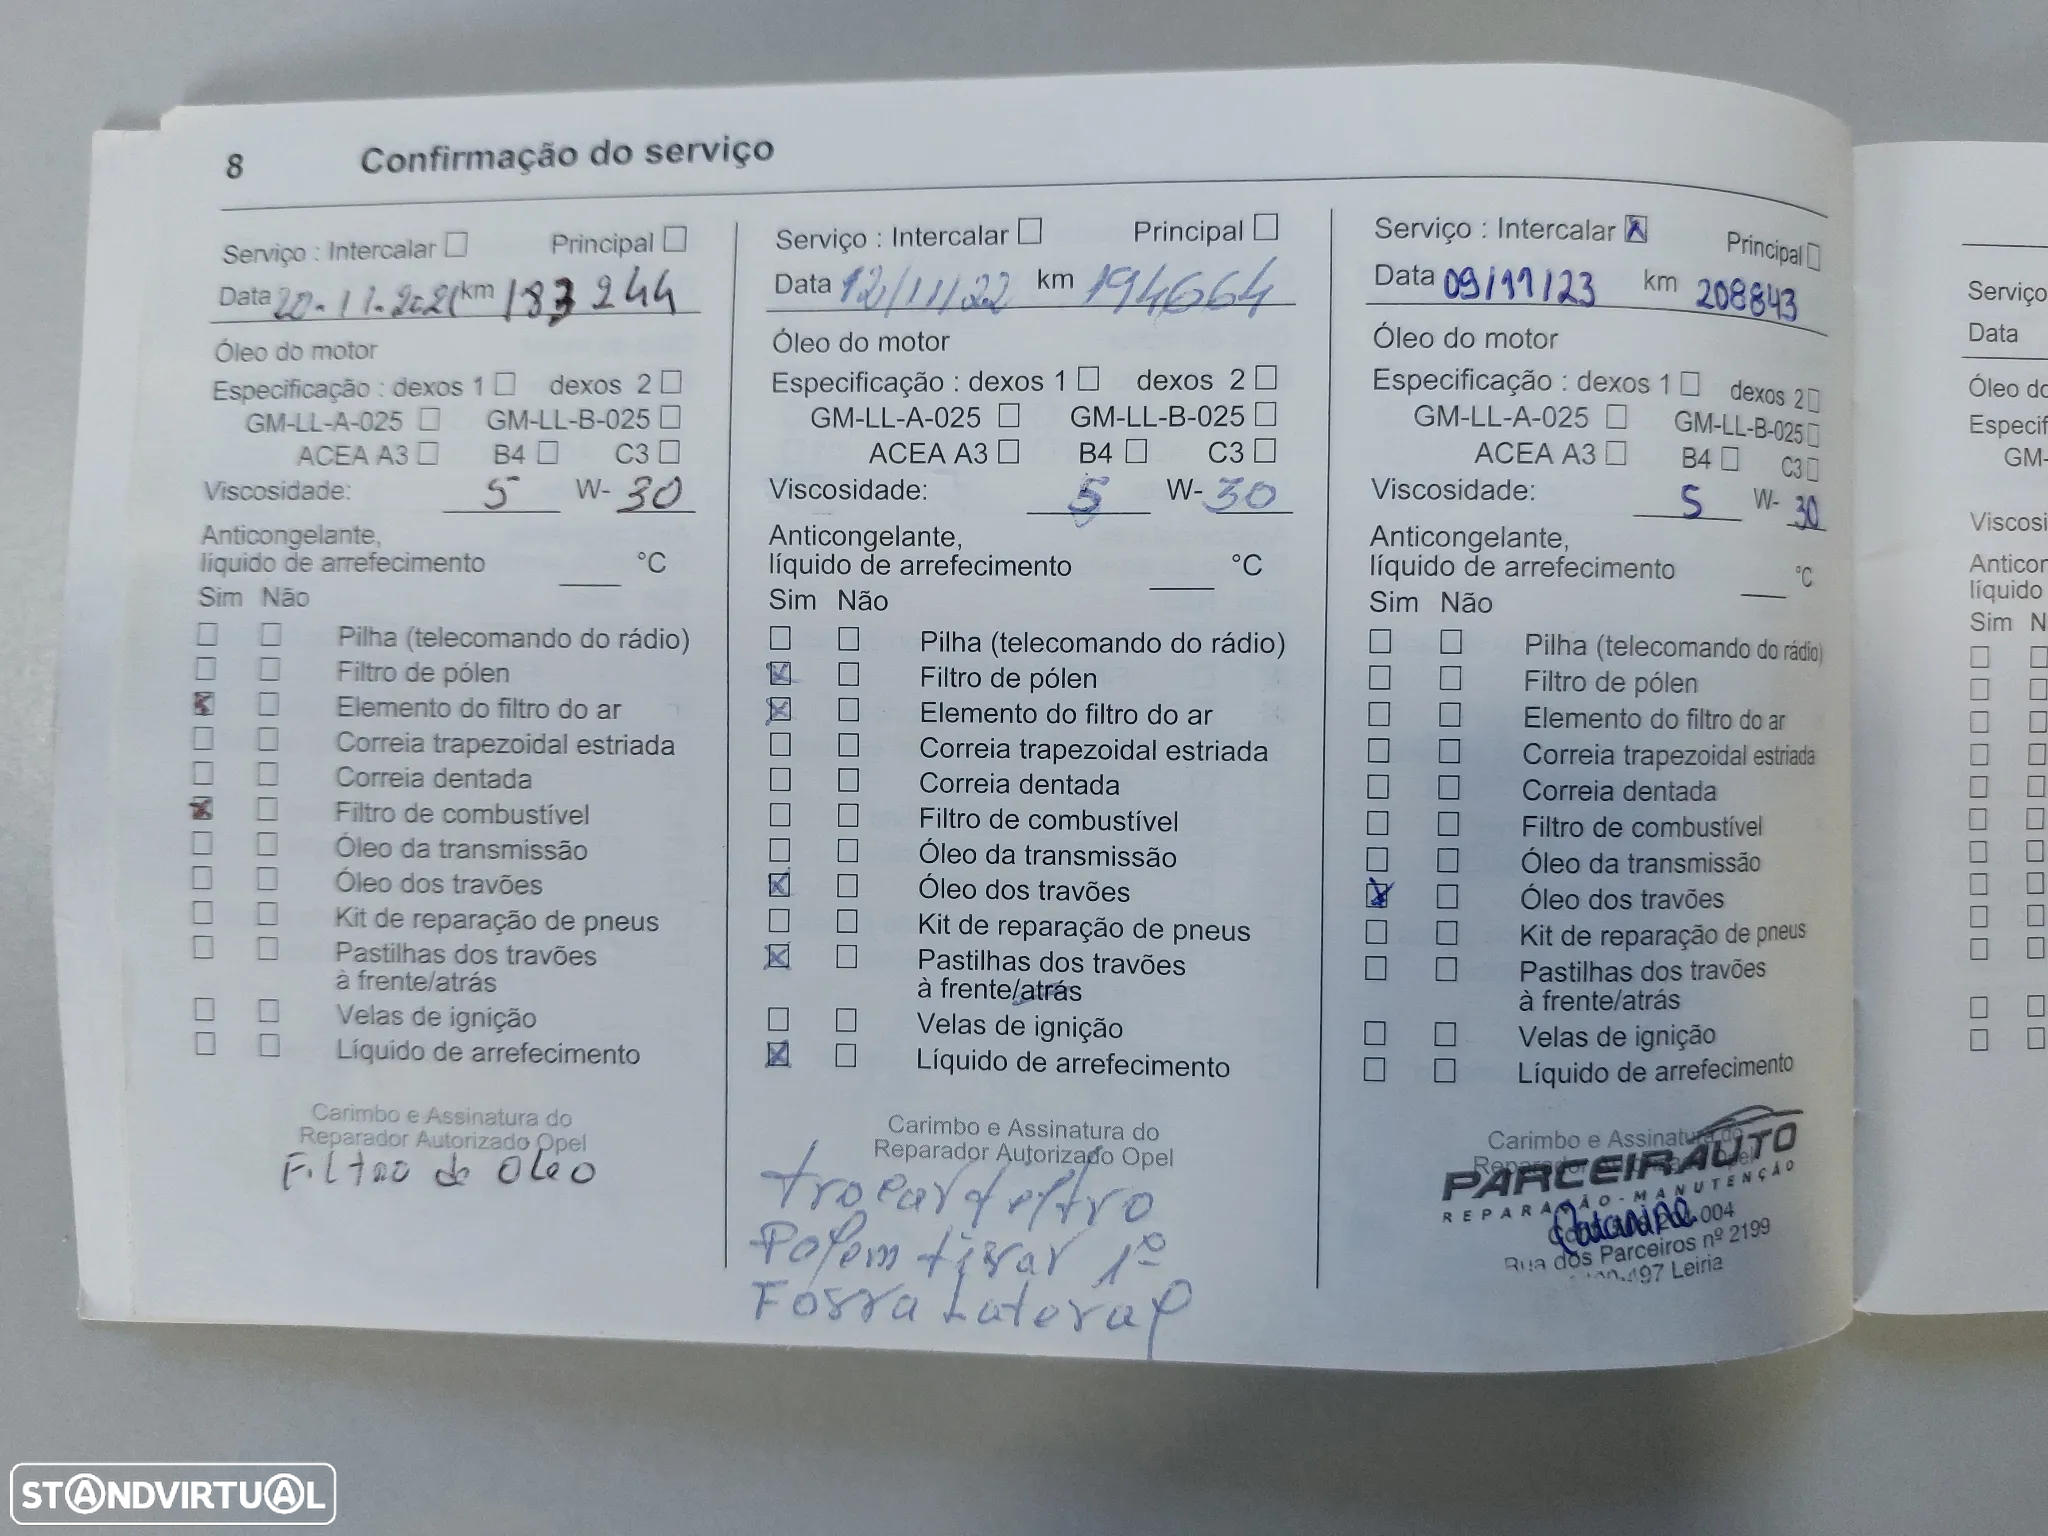 8 Confirmação do serviço
Serviço : Intercalar Principal
Data 20-11-2021 km 183 244
Óleo do motor
Especificação : dexos 1 dexos 2
GM-LL-A-025 GM-LL-B-025
ACEA A3 B4 C3
Viscosidade: 5 W- 30
Anticongelante,
líquido de arrefecimento °C
Sim Não
Pilha (telecomando do rádio)
Filtro de pólen
Elemento do filtro do ar
Correia trapezoidal estriada
Correia dentada
Filtro de combustível
Óleo da transmissão
Óleo dos travões
Kit de reparação de pneus
Pastilhas dos travões
à frente/atrás
Velas de ignição
Líquido de arrefecimento
Carimbo e Assinatura do
Reparador Autorizado Opel
Filtro de oleo
Serviço : Intercalar Principal
Data 12/11/22 km 194664
Óleo do motor
Especificação : dexos 1 dexos 2
GM-LL-A-025 GM-LL-B-025
ACEA A3 B4 C3
Viscosidade: 5 W- 30
Anticongelante,
líquido de arrefecimento °C
Sim Não
Pilha (telecomando do rádio)
Filtro de pólen
Elemento do filtro do ar
Correia trapezoidal estriada
Correia dentada
Filtro de combustível
Óleo da transmissão
Óleo dos travões
Kit de reparação de pneus
Pastilhas dos travões
à frente/atrás
Velas de ignição
Líquido de arrefecimento
Carimbo e Assinatura do
Reparador Autorizado Opel
trocar filtro
Polem tirar 1º
Forra Lateral
Serviço : Intercalar Principal
Data 09/11/23 km 208843
Óleo do motor
Especificação : dexos 1 dexos 2
GM-LL-A-025 GM-LL-B-025
ACEA A3 B4 C3
Viscosidade: 5 W- 30
Anticongelante,
líquido de arrefecimento °C
Sim Não
Pilha (telecomando do rádio)
Filtro de pólen
Elemento do filtro do ar
Correia trapezoidal estriada
Correia dentada
Filtro de combustível
Óleo da transmissão
Óleo dos travões
Kit de reparação de pneus
Pastilhas dos travões
à frente/atrás
Velas de ignição
Líquido de arrefecimento
Carimbo e Assinatura do
Reparador Opel
PARCEIRAUTO
REPARAÇÃO - MANUTENÇÃO
004
Rua dos Parceiros nº 2199
497 Leiria
Serviço
Data
Óleo do
Especif
GM-
Viscosi
Anticon
líquido
Sim N
STANDVIRTUAL